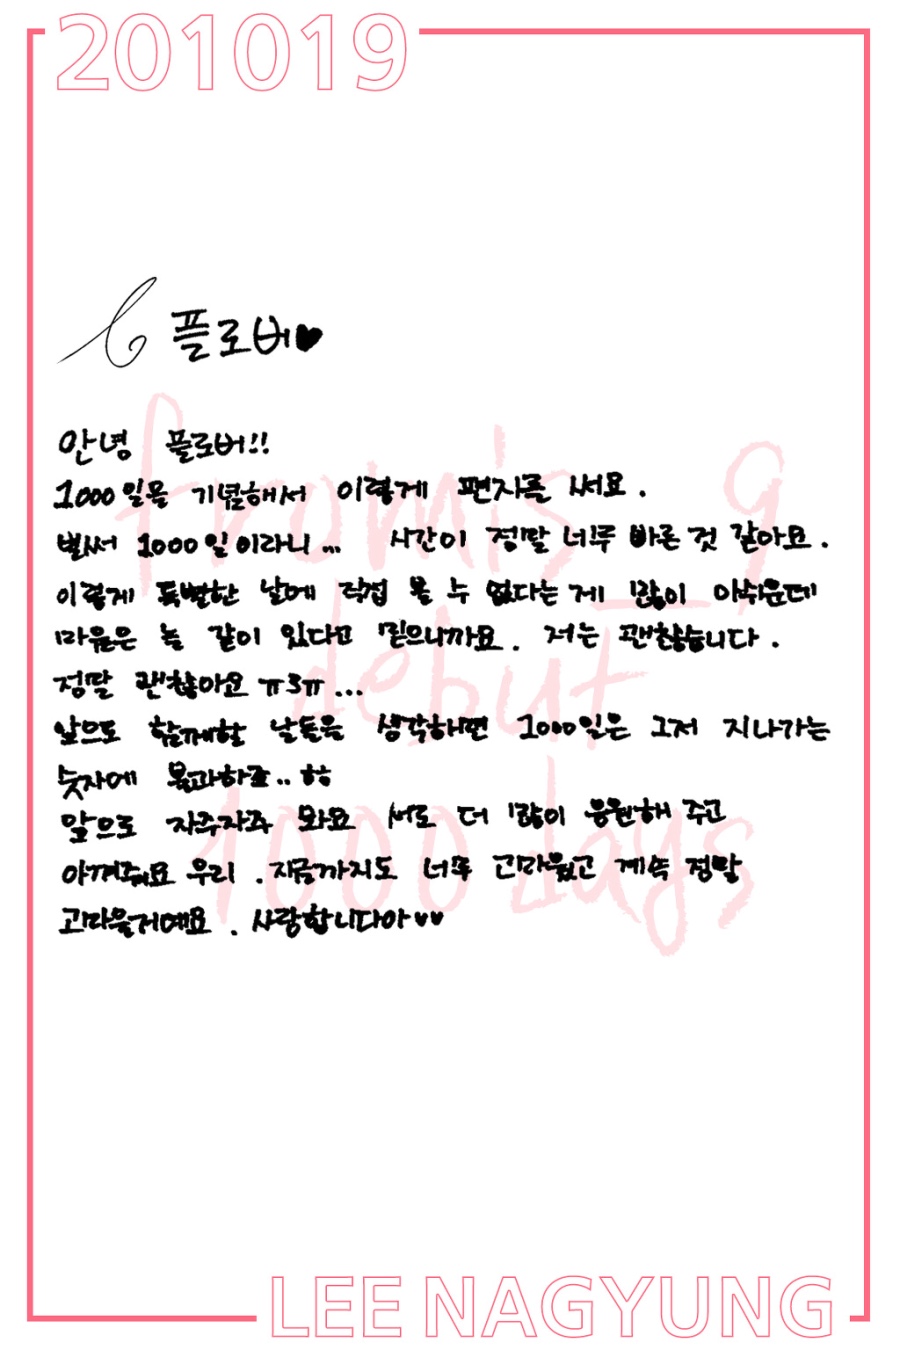 201019
To 플로버♥
안녕 플로버!!
1000일을 기념해서 이렇게 편지를 써요.
벌써 1000일이라니... 시간이 정말 너무 빠른 것 같아요.
이렇게 특별한 날에 직접 볼 수 없다는 게 많이 아쉬운데
마음은 늘 같이 있다고 믿으니까요. 저는 괜찮습니다.
정말 괜찮아요 ㅠ3ㅠ...
앞으로 함께할 날들을 생각하면 1000일은 그저 지나가는
숫자에 불과하죠.. ㅎㅎ
앞으로 자주자주 봐요 서로 더 많이 응원해 주고
아껴줘요 우리. 지금까지도 너무 고마웠고 계속 정말
고마울거예요. 사랑합니다아♥♥
fromis_9
debut
1000 days
LEE NAGYUNG